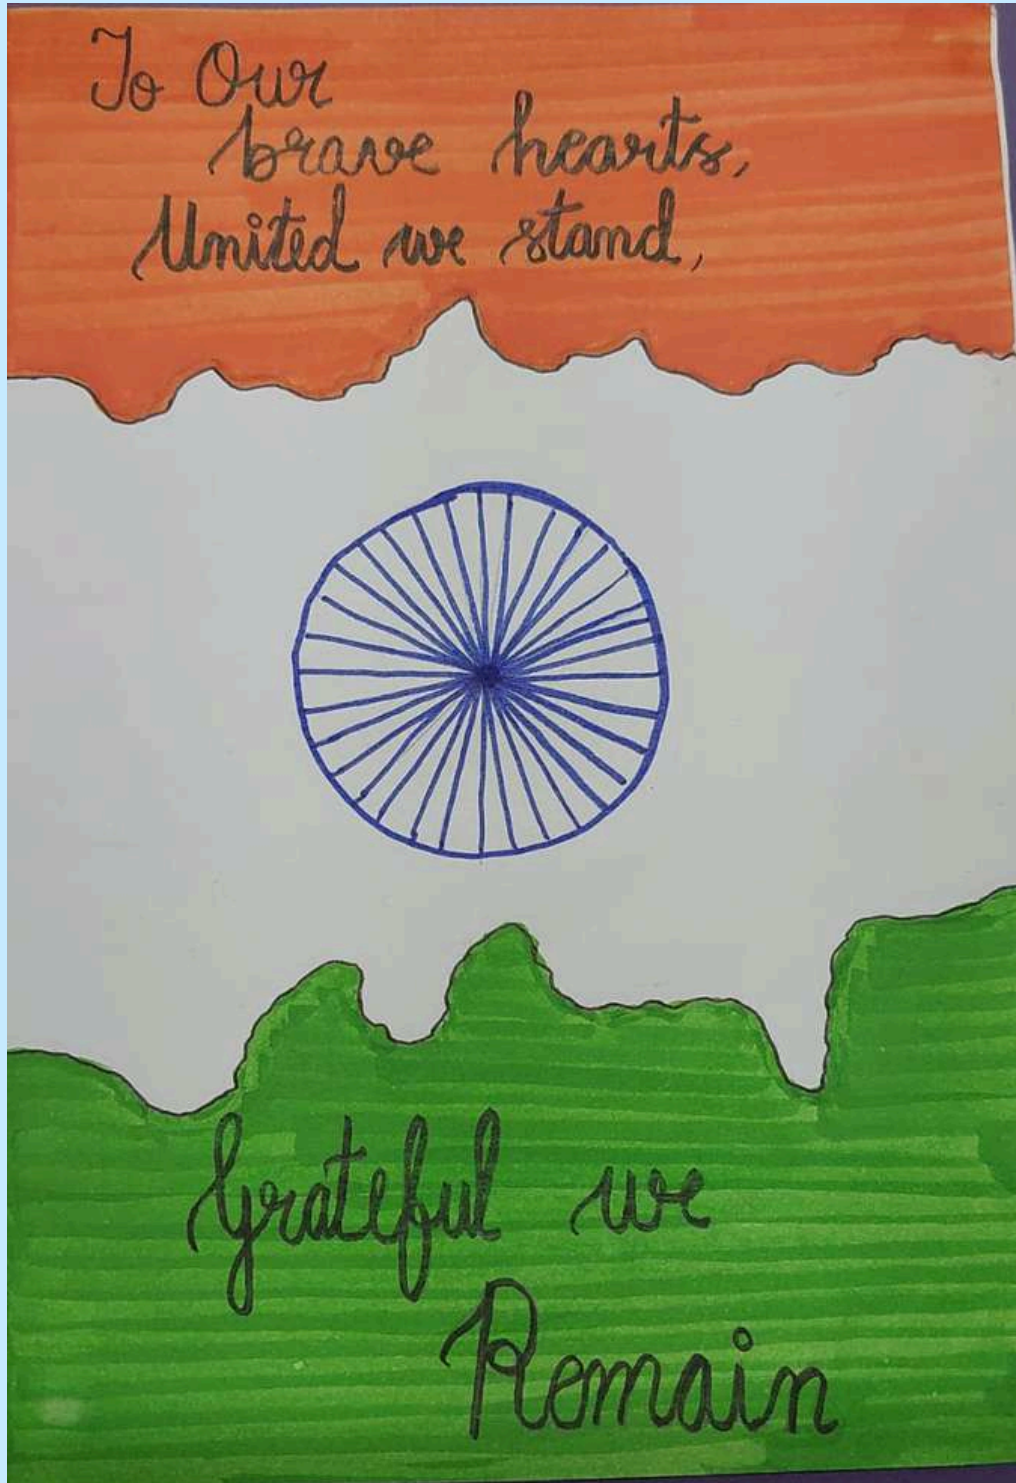 To Our
brave hearts,
United we stand,
Grateful we
Remain